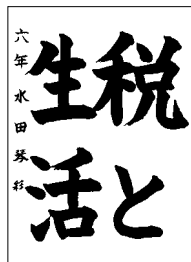 税と
生活
六年 水田琴彩